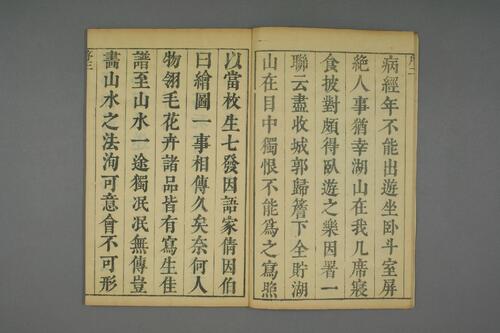 病經年不能出遊坐卧斗室屏
絶人事猶幸湖山在我几席寢
食披對頗得臥遊之樂因署一
聯云盡收城郭歸簷下全貯湖
山在目中獨恨不能爲之寫照
以當枚生七發因語家倩因伯
曰繪圖一事相傳久矣奈何人
物翎毛花卉諸品皆有寫生佳
譜至山水一途獨泯泯無傳豈
畵山水之法洵可意會不可形